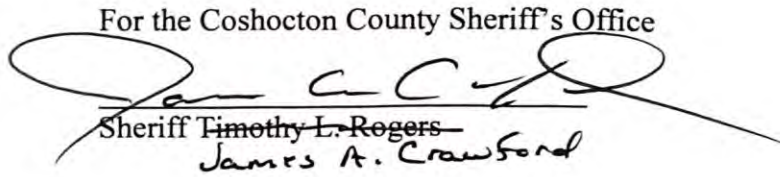 For the Coshocton County Sheriff's Office
Sheriff Timothy L. Rogers
James A. Crawford